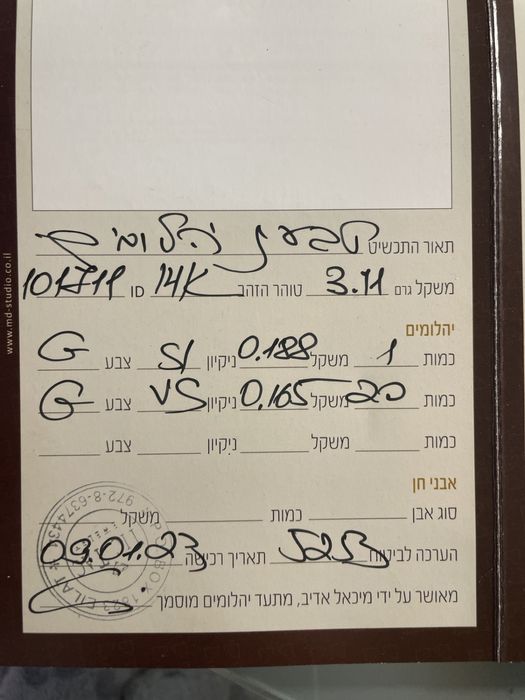 תאור התכשיט טבעת יהלומים
משקל גרם 3.11 טוהר הזהב 14K ID 101711
יהלומים
כמות 1 משקל 0.188 ניקיון SI צבע G
כמות 20 משקל 0.165 ניקיון VS צבע G
כמות משקל ניקיון צבע
אבני חן
סוג אבן כמות משקל
הערכה לביטוח תאריך רכישה 09.01.23
מאושר על ידי מיכאל אדיב, מתעד יהלומים מוסמך
www.md-studio.co.il
EILAT